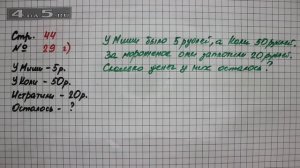 4 на 5.ru
Стр. 44
№ 29 г)
У Миши - 5р.
У Коли - 50р.
Истратили - 20р.
Осталось - ?
У Миши было 5 рублей, а Коли 50 рублей.
За мороженое они заплатили 20 рублей.
Сколько денег у них осталось?